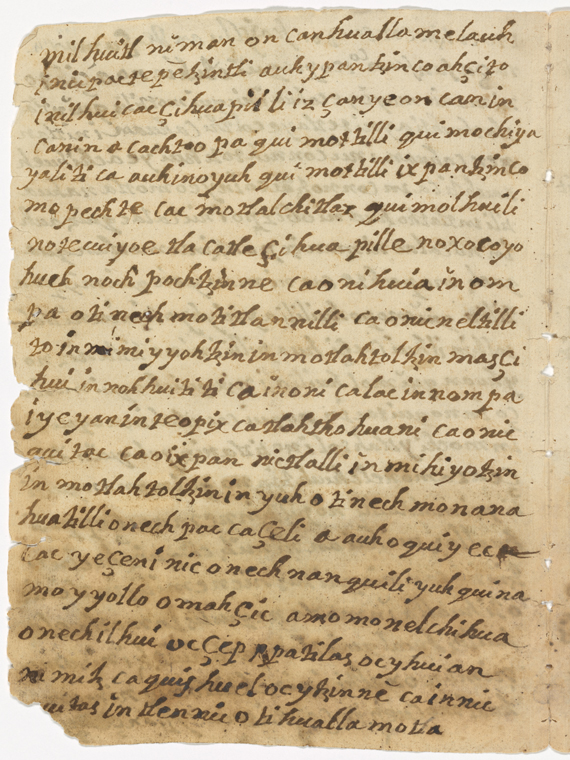 ꝫmilhuitl niman on can hualla melauh
inic pac tepetzintli auh y pantzinco ahçito
in ilhuicac Çihuapilli iz çan ye on can in
canin a cachtoo pa qui mottilli qui mochiya
yaliti ca auh in o yuh qui mottilli ixpantzinco
mo pechte cac mo tlalchitlax qui molhuili
notecuiyoe tla catle Çihua pille noxocoyo
hueh noch pochtzinne ca onihuia in om
pa oti nech motitlannilli ca onic neltilli
to in miyyohtzin in motlahtoltzin maçi
hui in nohhuititi ca in oni calac in nompa
iyeyan in teopixcatlahtohuani ca onic
quitac ca oixpan nictlalli in mihiyotzin
in motlahtoltzin in yuh o ti nech monana
huatilli onech pac caÇeli a auh o quiyecca
cac yeÇeni ic onech nanquili yuh quina
moyyollo omahÇic amo monelchihua
onechilhui ocÇeppa tilas oc yhuian
nimitz caquiz huel oc ytzinne ca in nic
uitas in tlen nic o ti hualla motla